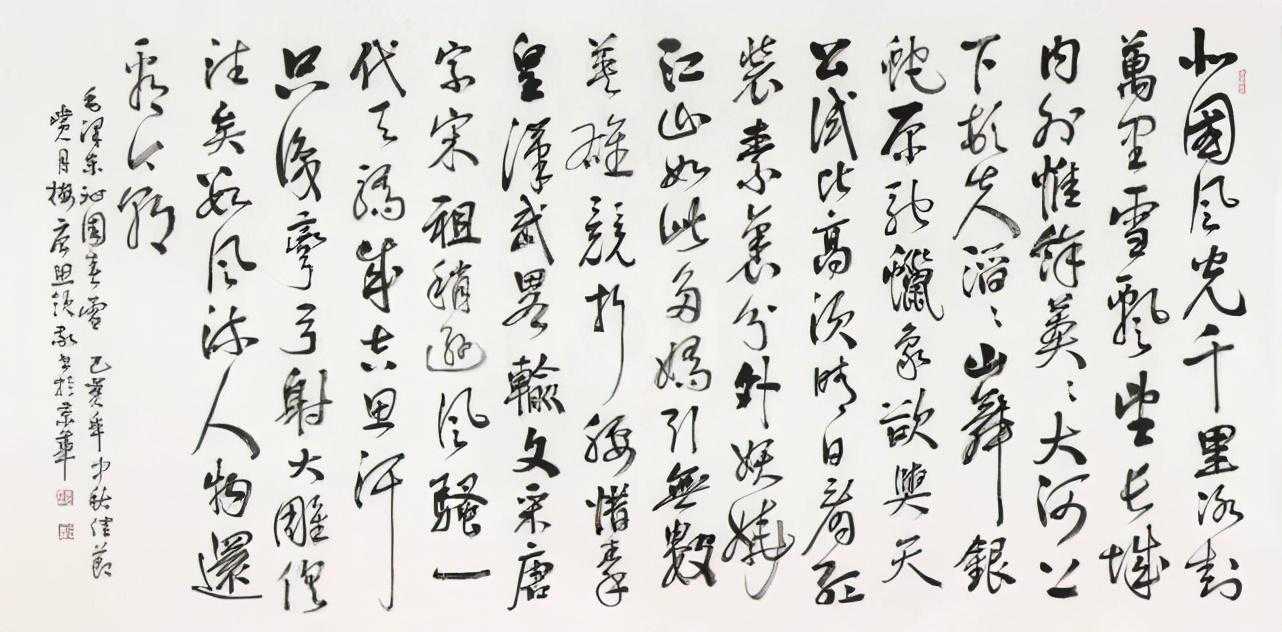 北國風光千里冰封
萬里雪飄望長城
内外惟餘莽〻大河上
下頓失滔〻山舞銀
蛇原馳蠟象欲與天
公試比高須晴日看紅
裝素裹分外妖嬈
江山如此多嬌引無數
英雄競折腰惜秦
皇漢武畧輸文采唐
宗宋祖稍遜風騷一
代天驕成吉思汗
只識彎弓射大雕俱
往矣數風流人物還
看今朝
毛澤東沁園春雪 己亥年中秋佳節
月梅唐思領敬書於京華